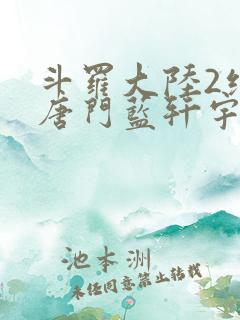 斗羅大陸2絕
唐門藍軒宇
池本洲
未經同意禁止轉載